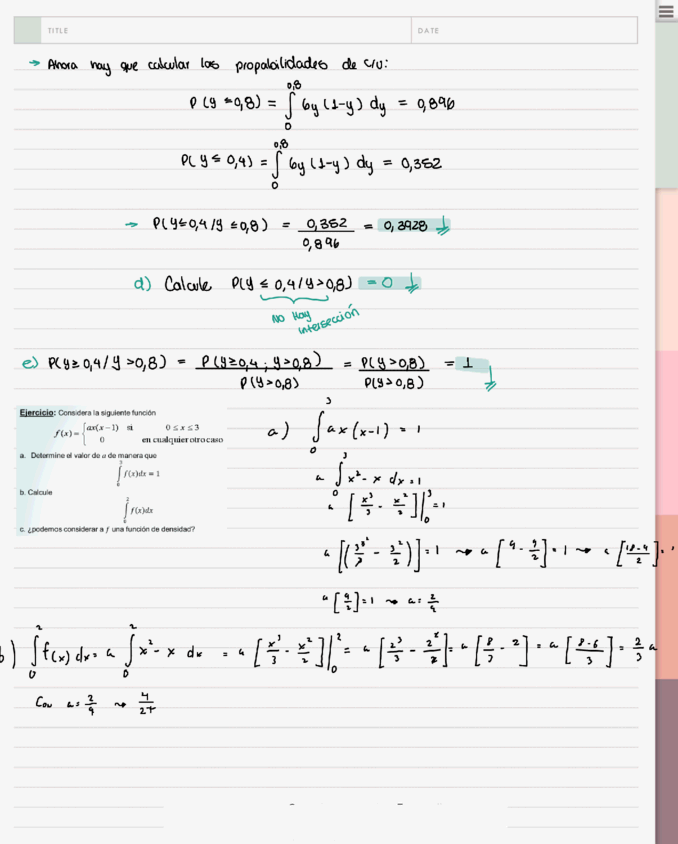 TITLE DATE
→ Ahora hay que calcular las propabilidades de c/u:
P(y ≤ 0,8) = ∫₀^0,8 6y (1-y) dy = 0,896
P(y ≤ 0,4) = ∫₀^0,8 6y (1-y) dy = 0,352
→ P(y ≤ 0,4 / y ≤ 0,8) = 0,352 / 0,896 = 0,3928
d) Calcule P(y ≤ 0,4 / y > 0,8) = 0
No Hay
intersección
e) P(y ≥ 0,4 / y > 0,8) = P(y ≥ 0,4 ; y > 0,8) / P(y > 0,8) = P(y > 0,8) / P(y > 0,8) = 1
Ejercicio: Considera la siguiente función
f(x) = { ax(x−1) si 0 ≤ x ≤ 3
0 en cualquier otro caso
a. Determine el valor de a de manera que
∫₀³ f(x)dx = 1
b. Calcule
∫₀² f(x)dx
c. ¿podemos considerar a f una función de densidad?
a) ∫₀³ ax (x-1) = 1
a ∫₀³ x² - x dx = 1
a [x³/3 - x²/2]|₀³ = 1
a [(3³/3 - 3²/2)] = 1 → a [9 - 9/2] = 1 → a [(18-9)/2] =
a [9/2] = 1 → a = 2/9
b) ∫₀² f(x) dx = a ∫₀² x² - x dx = a [x³/3 - x²/2]|₀² = a [2³/3 - 2²/2] = a [8/3 - 2] = a [(8-6)/3] = 2/3 a
Con a = 2/9 → 4/27